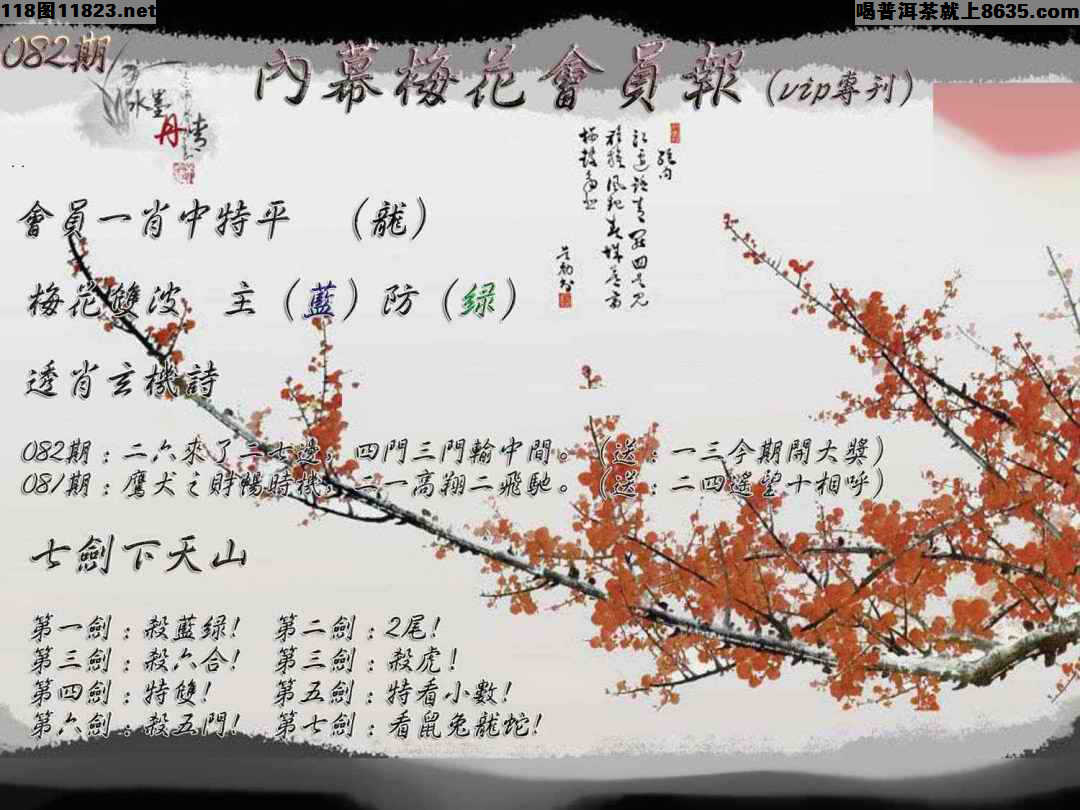 118图11823.net
喝普洱茶就上8635.com
082期
內幕梅花會員報(vip專刊)
水墨
丹青
會員一肖中特平 (龍)
梅花雙波 主(藍)防(绿)
透肖玄機詩
082期:二六來了二七邊,四門三門輸中間。(送:一三今期開大獎)
081期:鷹犬之時暢時機,二一高翔二飛馳。(送:二四遙望十相呼)
七劍下天山
第一劍:殺藍绿! 第二劍:2尾!
第三劍:殺六合! 第三劍:殺虎!
第四劍:特雙! 第五劍:特看小數!
第六劍:殺五門! 第七劍:看鼠兔龍蛇!